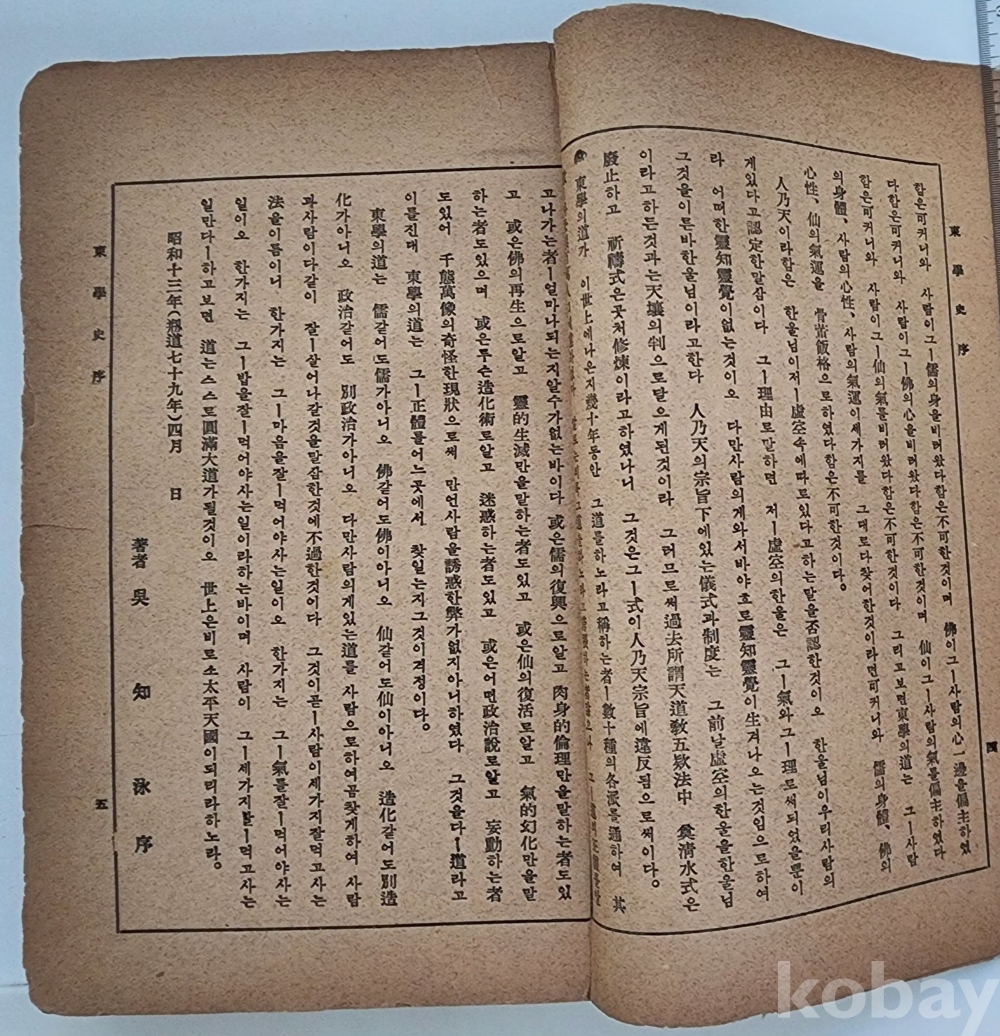 東學史序
四
함은可커니와 사람이그ㅡ儒의身을비러왔다함은不可한것이며 佛이그ㅡ사람의心一邊을偏主하였
다함은可커니와 사람이그ㅡ佛의心을비러왔다함은不可한것이며 仙이그ㅡ사람의氣를偏主하였다
함은可커니와 사람이그ㅡ仙의氣를비러왔다함은不可한것이다 그리고보면東學의道는 그ㅡ사람
의身體、사람의心性、사람의氣運이세가지를 그대로다찾어한것이라면可커니와 儒의身體、佛의
心性、仙의氣運을 骨董飯格으로하였다함은不可한것이다。
人乃天이라함은 한울님이저ㅡ虛空속에따로있다고하는말을否認한것이오 한울님이우리사람의
게있다고認定한말삼이다 그ㅡ理由로말하면 저ㅡ虛空의한울은 그ㅡ氣와그ㅡ理로써되었을뿐이
라 어떠한靈知靈覺이없는것이오 다만사람의게와서바야흐로靈知靈覺이생겨나오는것임으로하여
그것을이른바한울님이라고한다 人乃天의宗旨下에있는儀式과制度는 그前날虛空의한울을한울님
이라고하든것과는天壤의判으로달으게된것이라 그러므로써過去所謂天道敎五欵法中 奠淸水式은
廢止하고 祈禱式은곳처修煉이라고하였나니 그것은그ㅡ式이人乃天宗旨에違反됨으로써이다。
東學의道가 이世上에나온지幾十年동안 그道를하노라고稱하는者ㅡ數十種의各派를通하여 其
고나가는者ㅡ얼마나되는지알수가없는바이다 或은儒의復興으로알고 肉身的倫理만을말하는者도있
고 或은佛의再生으로알고 靈的生滅만을말하는者도있고 或은仙의復活로알고 氣的幻化만을말
하는者도있으며 或은무슨造化術로알고 迷惑하는者도있고 或은어떤政治說로알고 妄動하는者
도있어 千態萬像의奇怪한現狀으로써 만언사람을誘惑한弊가없지아니하였다 그것을다ㅡ道라고
이를진대 東學의道는 그ㅡ正體를어느곳에서 찾일는지그것이걱정이다。
東學의道는 儒같어도儒가아니오 佛같어도佛이아니오 仙같어도仙이아니오 造化같어도別造
化가아니오 政治같어도 別政治가아니오 다만사람의게있는道를 사람으로하여곰찾게하여 사람
과사람이다같이 잘ㅡ살어나갈것을말삼한것에不過한것이다 그것이곧ㅡ사람이세가지잘먹고사는
法을이름이니 한가지는 그ㅡ마음을잘ㅡ먹어야사는일이오 한가지는 그ㅡ氣를잘ㅡ먹어야사는
일이오 한가지는 그ㅡ밥을잘ㅡ먹어야사는일이라하는바이며 사람이 그ㅡ세가지잘ㅡ먹고사는
일만다ㅡ하고보면 道는스스로圓滿大道가될것이오 世上은비로소太平天國이되리라하노라。
昭和十三年(布道七十九年)四月 日
著者 吳知泳 序
東學史序
五
kobay